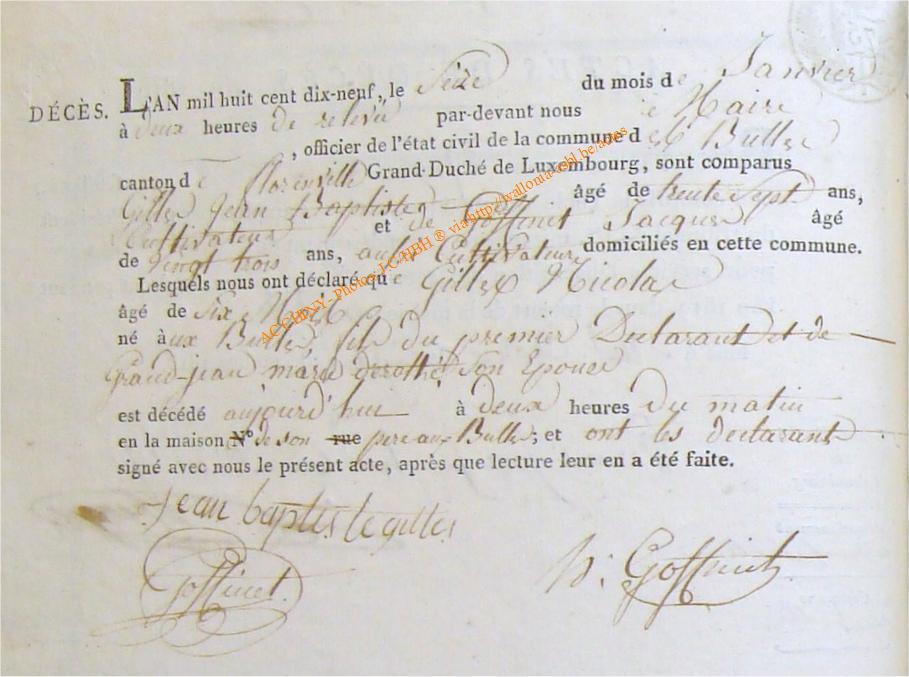 DÉCÈS. L'AN mil huit cent dix-neuf, le Seize du mois de Janvier
à deux heures de relevée par-devant nous le Maire
, officier de l'état civil de la commune des Bulles
canton de florenville Grand-Duché de Luxembourg, sont comparus
Gilles Jean Baptiste âgé de trente Sept ans,
Cultivateur et de Goffinet Jacques âgé
de vingt trois ans, aussi Cultivateur domiciliés en cette commune.
Lesquels nous ont déclaré que Gilles Nicolas
âgé de six Mois
né aux Bulles, fils du premier Declarant et de
Grand-jean marie dorothé son Epouse
est décédé aujourd'hui à deux heures du matin
en la maison N° de son rue pere aux Bulles; et ont les declarant
signé avec nous le présent acte, après que lecture leur en a été faite.
jean baptiste gilles
Goffinet
Goffinet
ACCHBNY - Photos J-C HBH ® via http://wallonia-asbl.be/actes